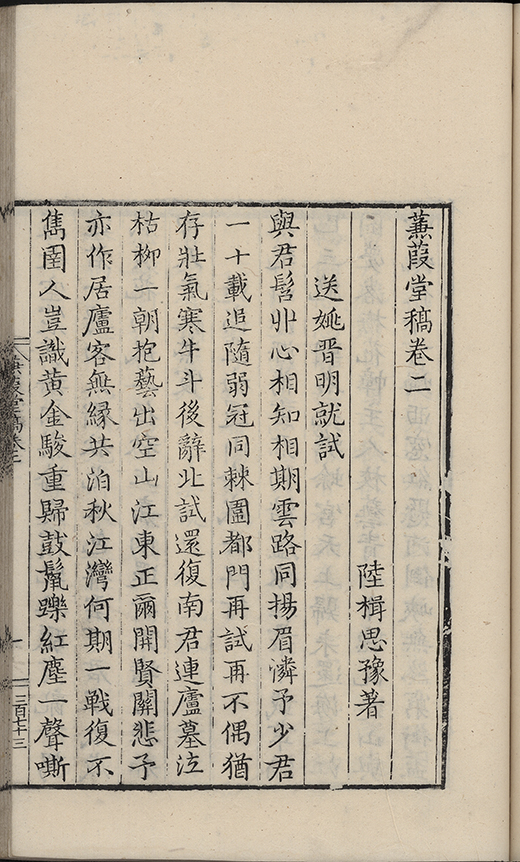 蒹葭堂稿卷二
陸楫思豫著
送姚晉明就試
與君髫丱心相知相期雲路同揚眉憐予少君
一十載追隨弱冠同棘圍都門再試再不偶猶
存壯氣寒牛斗後辭北試還復南君連廬墓泣
枯柳一朝抱藝出空山江東正爾開賢關悲予
亦作居廬客無緣共泊秋江灣何期一戰復不
雋圉人豈識黃金駿重歸鼓鬣躒紅塵一聲嘶
三百七十三